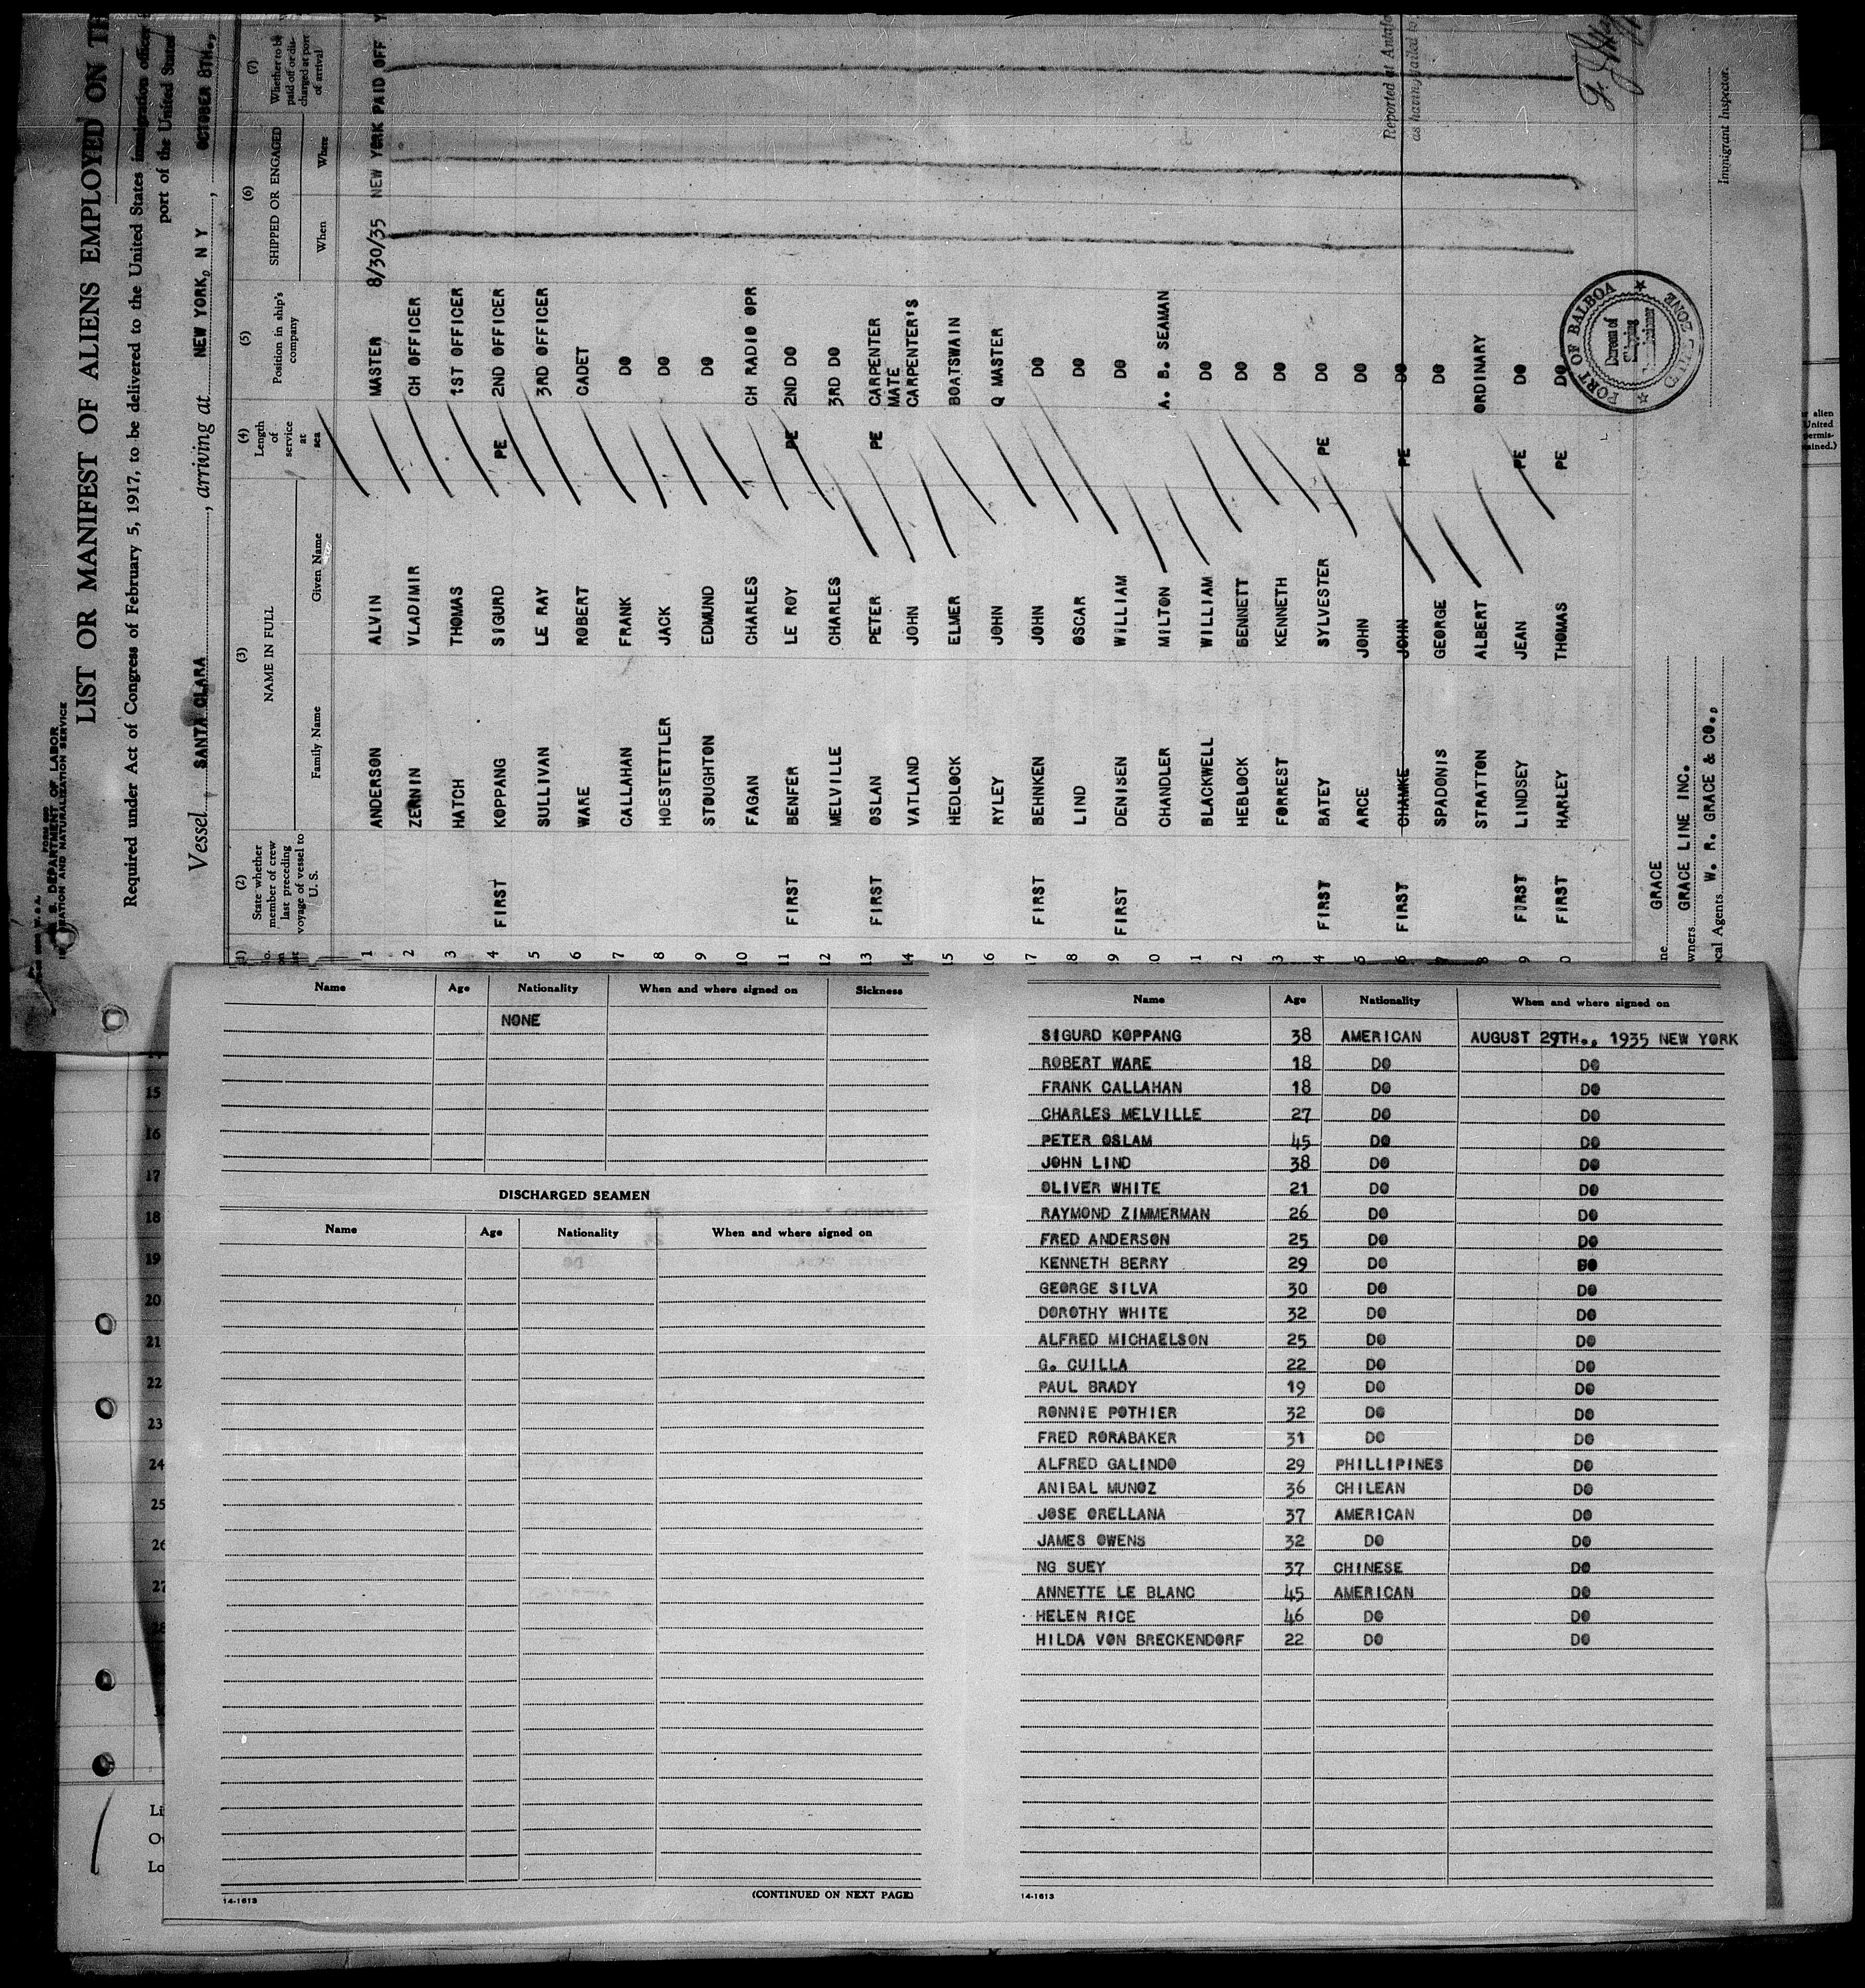 FORM 689
U. S. DEPARTMENT OF LABOR
IMMIGRATION AND NATURALIZATION SERVICE
LIST OR MANIFEST OF ALIENS EMPLOYED ON TH
Required under Act of Congress of February 5, 1917, to be delivered to the United States immigration officer
port of the United States
Vessel SANTA CLARA, arriving at NEW YORK, N Y, OCTOBER 8TH.,
(2) State whether member of crew last preceding voyage of vessel to U. S.
(3) NAME IN FULL
Family Name Given Name
(4) Length of service at sea
(5) Position in ship's company
(6) SHIPPED OR ENGAGED
When Where
(7) Whether to be paid off or discharged at port of arrival
1 ANDERSON ALVIN MASTER 8/30/35 NEW YORK PAID OFF
2 ZERNIN VLADIMIR CH OFFICER
3 HATCH THOMAS 1ST OFFICER
4 FIRST KOPPANG SIGURD PE 2ND OFFICER
5 SULLIVAN LE RAY 3RD OFFICER
6 WARE ROBERT CADET
7 CALLAHAN FRANK DO
8 HOESTETTLER JACK DO
9 STOUGHTON EDMUND DO
10 FAGAN CHARLES CH RADIO OPR
11 FIRST BENFER LE ROY PE 2ND DO
12 MELVILLE CHARLES 3RD DO
13 FIRST OSLAN PETER PE CARPENTER
14 VATLAND JOHN MATE CARPENTER'S
15 HEDLOCK ELMER BOATSWAIN
16 RYLEY JOHN Q MASTER
17 FIRST BEHNKEN JOHN DO
8 LIND OSCAR DO
9 FIRST DENISEN WILLIAM DO
0 CHANDLER MILTON A. B. SEAMAN
1 BLACKWELL WILLIAM DO
2 HEBLOCK BENNETT DO
3 FORREST KENNETH DO
4 FIRST BATEY SYLVESTER PE DO
5 ARCE JOHN DO
6 FIRST CHAMKE JOHN PE DO
7 SPADONIS GEORGE DO
8 STRATTON ALBERT ORDINARY
9 FIRST LINDSEY JEAN PE DO
0 FIRST HARLEY THOMAS PE DO
PORT OF BALBOA
CANAL ZONE
Bureau of
Shipping
Commissioner
Reported at Antofa
as having failed to
Immigrant Inspector.
ne GRACE
wners GRACE LINE INC.
ocal Agents W. R. GRACE & CO.,
r alien
United
permis-
tained.)
Name Age Nationality When and where signed on Sickness
NONE
DISCHARGED SEAMEN
Name Age Nationality When and where signed on
14-1613
(CONTINUED ON NEXT PAGE)
Name Age Nationality When and where signed on
SIGURD KOPPANG 38 AMERICAN AUGUST 29TH., 1935 NEW YORK
ROBERT WARE 18 DO DO
FRANK CALLAHAN 18 DO DO
CHARLES MELVILLE 27 DO DO
PETER OSLAM 45 DO DO
JOHN LIND 38 DO DO
OLIVER WHITE 21 DO DO
RAYMOND ZIMMERMAN 26 DO DO
FRED ANDERSON 25 DO DO
KENNETH BERRY 29 DO DO
GEORGE SILVA 30 DO DO
DOROTHY WHITE 32 DO DO
ALFRED MICHAELSON 25 DO DO
G. CUILLA 22 DO DO
PAUL BRADY 19 DO DO
RONNIE POTHIER 32 DO DO
FRED RORABAKER 31 DO DO
ALFRED GALINDO 29 PHILLIPINES DO
ANIBAL MUNOZ 36 CHILEAN DO
JOSE ORELLANA 37 AMERICAN DO
JAMES OWENS 32 DO DO
NG SUEY 37 CHINESE DO
ANNETTE LE BLANC 45 AMERICAN DO
HELEN RICE 46 DO DO
HILDA VON BRECKENDORF 22 DO DO
14-1613
15
16
17
18
19
20
21
22
23
24
25
26
27
28
Li
Ow
Lo